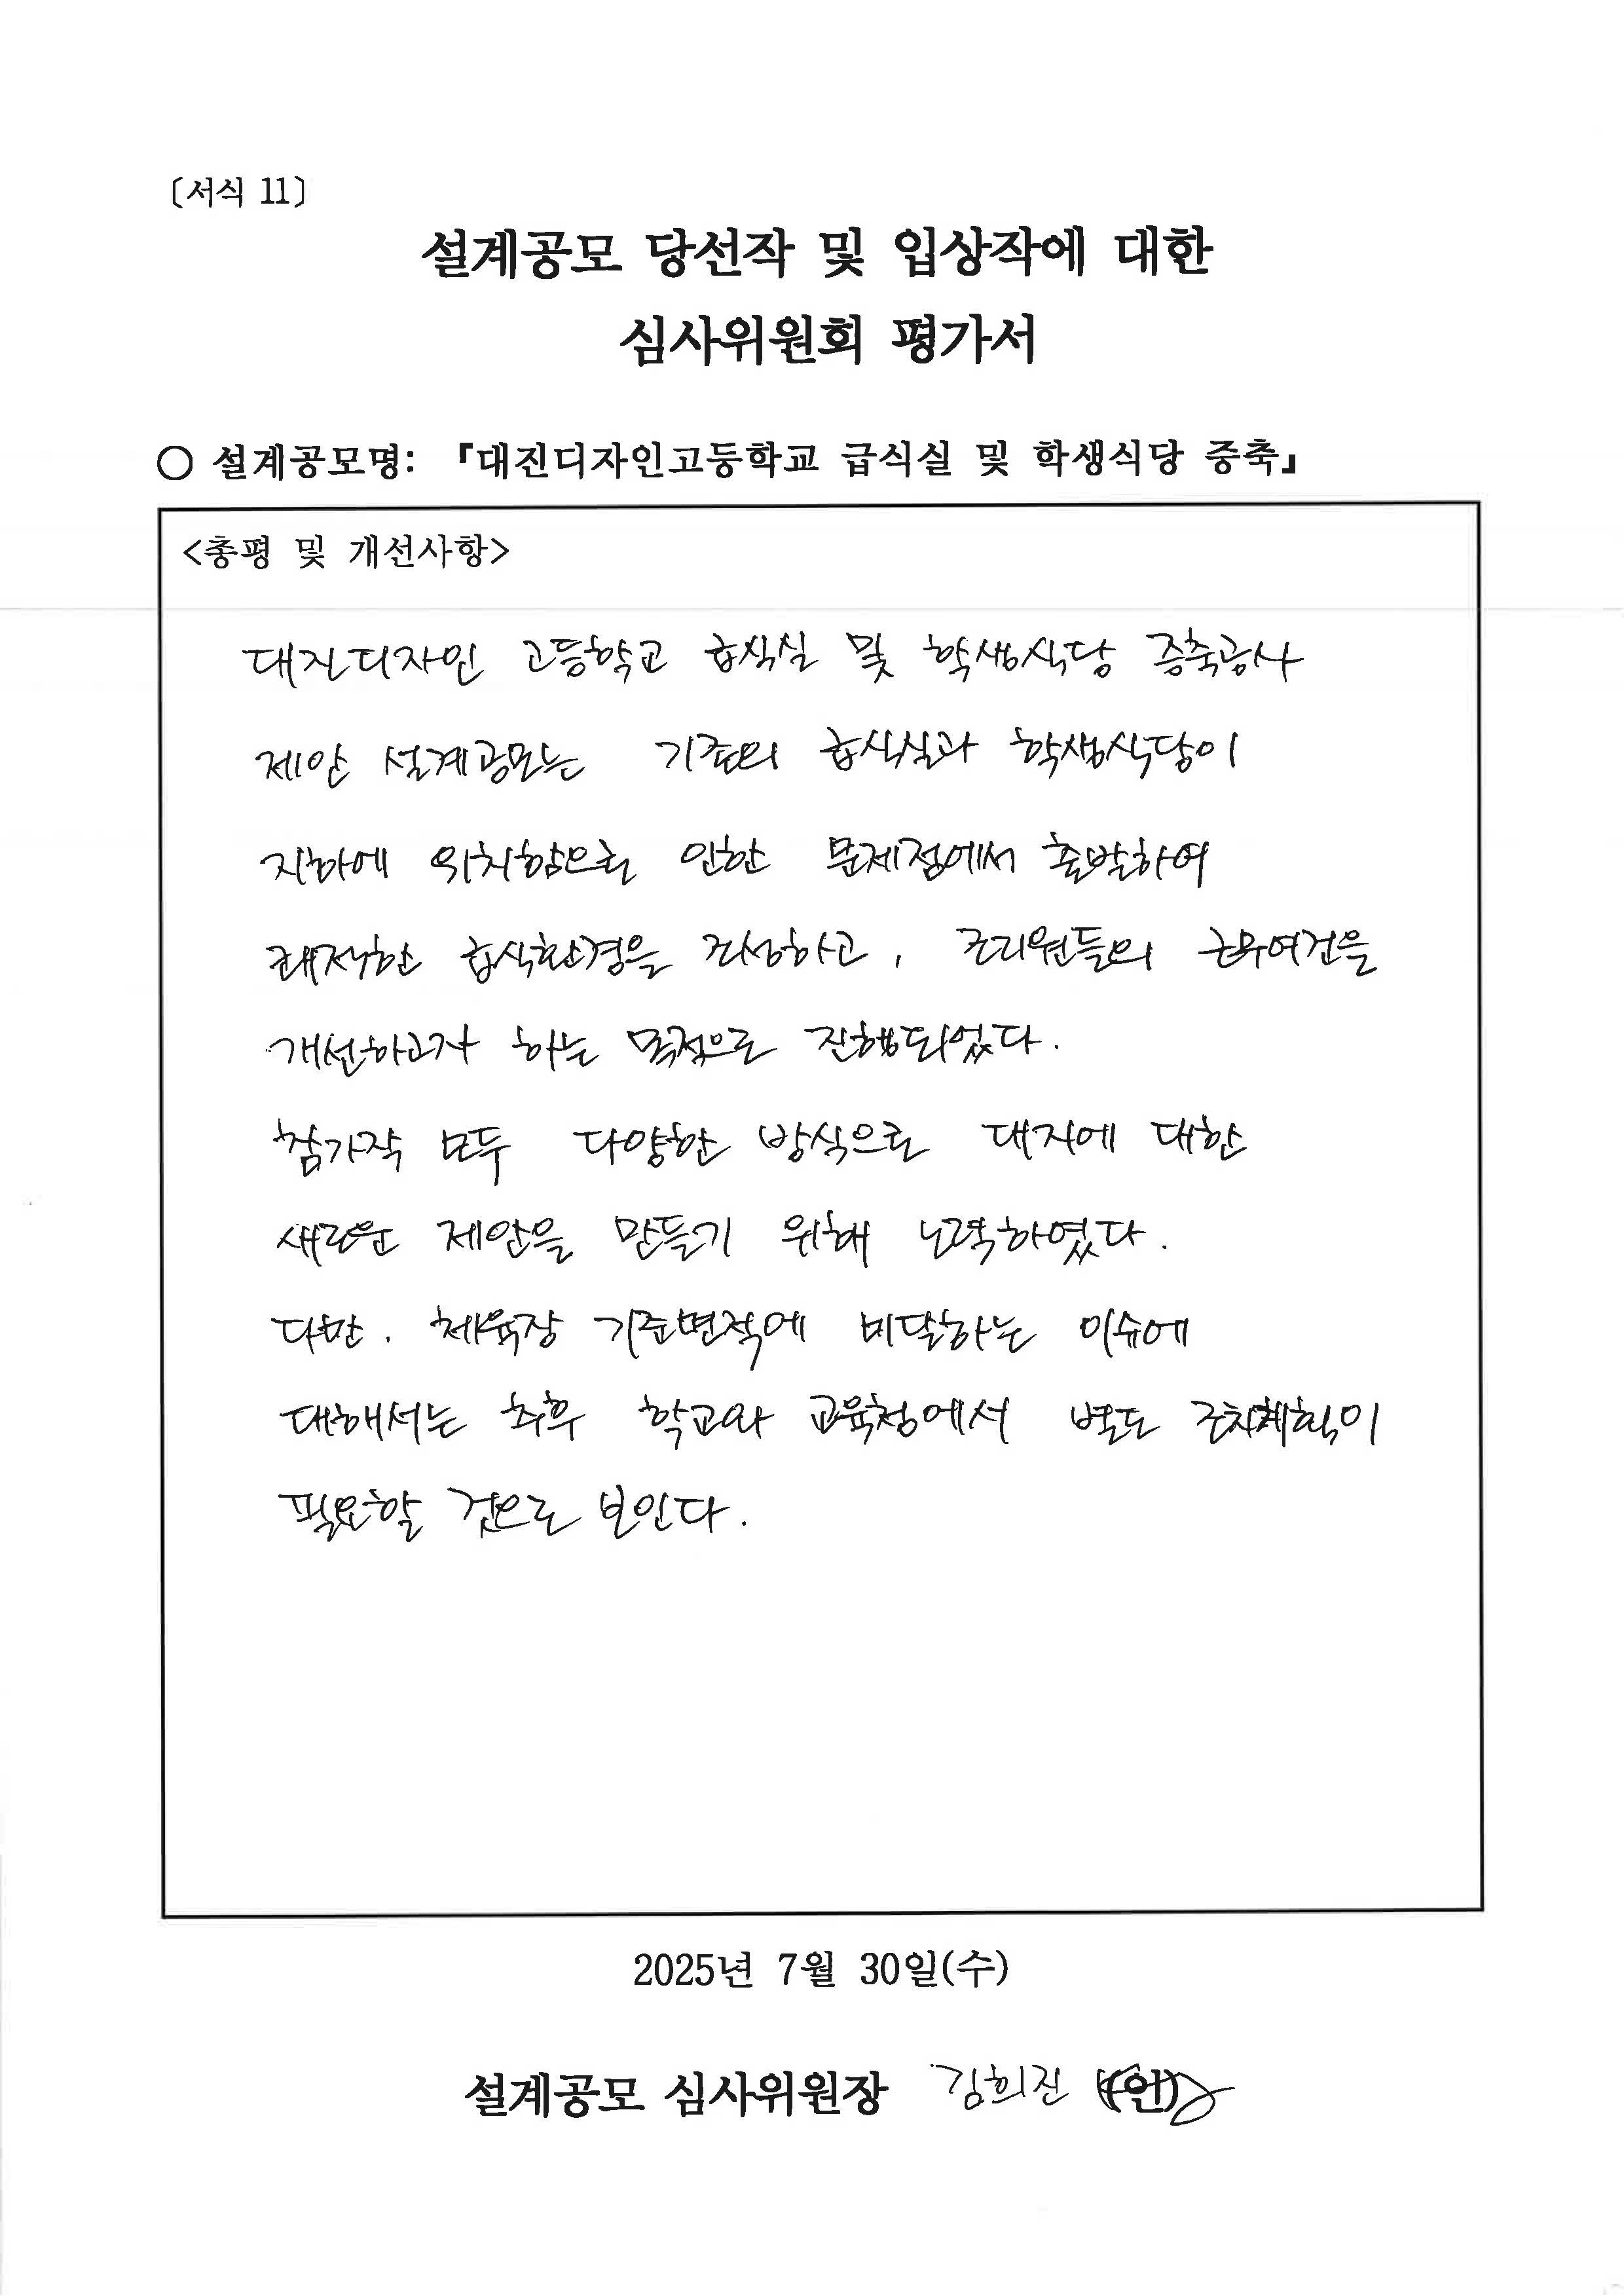 〔서식 11〕
설계공모 당선작 및 입상작에 대한
심사위원회 평가서
○ 설계공모명: 『대진디자인고등학교 급식실 및 학생식당 증축』
<총평 및 개선사항>
대진디자인 고등학교 급식실 및 학생식당 증축공사
제안 설계공모는 기존의 급식실과 학생식당이
지하에 위치함으로 인한 문제점에서 출발하여
쾌적한 급식환경을 조성하고, 조리원들의 근무여건을
개선하고자 하는 목적으로 진행되었다.
참가작 모두 다양한 방식으로 대지에 대한
새로운 제안을 만들기 위해 노력하였다.
다만, 체육장 기준면적에 미달하는 이슈에
대해서는 추후 학교와 교육청에서 별도 조치계획이
필요할 것으로 보인다.
2025년 7월 30일(수)
설계공모 심사위원장 김희진 (인)